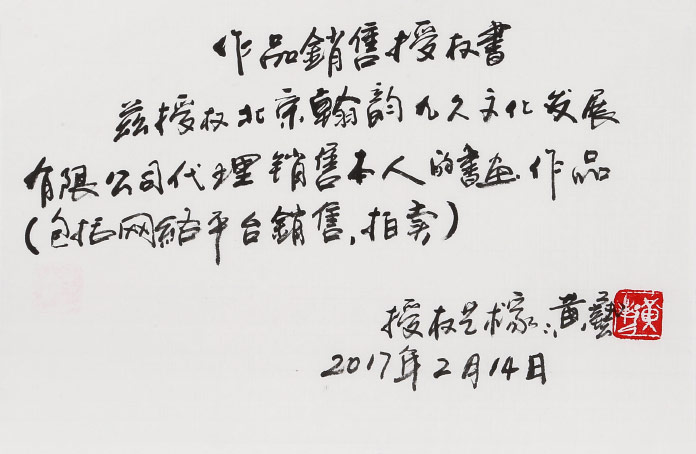 作品銷售授权書
兹授权北京翰韵九久文化发展
有限公司代理销售本人的書画作品
(包括网络平台銷售,拍卖)
授权艺术家:黄艺
2017年2月14日